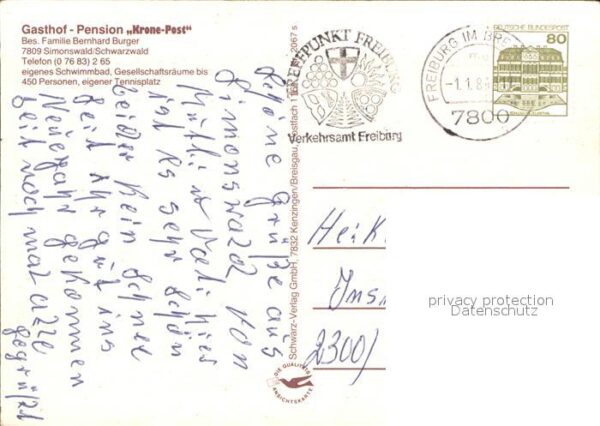 Gasthof - Pension „Krone-Post“
Bes. Familie Bernhard Burger
7809 Simonswald/Schwarzwald
Telefon (0 76 83) 2 65
eigenes Schwimmbad, Gesellschaftsräume bis
450 Personen, eigener Tennisplatz
Schöne Grüße aus
Simonswald von
Mutti u Vati hier
ist es sehr schön
leider kein Schnee
Seit ihr gut ins
Neuejahr gekommen
Seit noch mal alle
gegrüßt
Schwarz-Verlag GmbH, 7832 Kenzingen/Breisgau, Postfach 1
2067 s
TREFFPUNKT FREIBURG
Verkehrsamt Freiburg
FREIBURG IM BRE
-1.1.8
7800
DEUTSCHE BUNDESPOST
80
Heik
Ins
2300/
DIE QUALITÄTS
ANSICHTSKARTE
privacy protection
Datenschutz